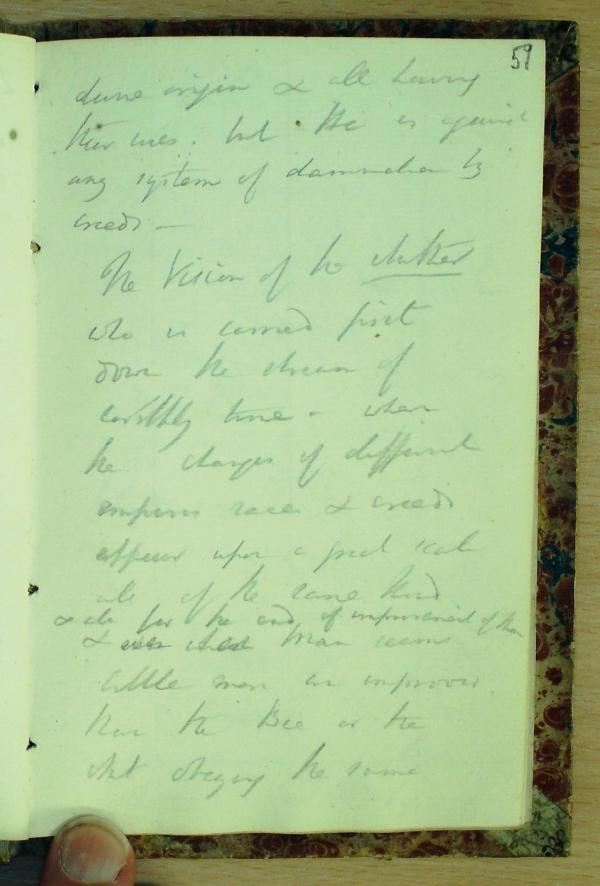 59
divine origin & all having
their uses. but He is against
any system of damnation by
creeds —
The Vision of the
who is carried first
down the stream of
earthly time - when
the changes of different
empires races & creeds
appear upon a great scale
all of the same kind
& all for the end of improvement of
& Man seems
little more an improver
than the Bee or the
obeying the same